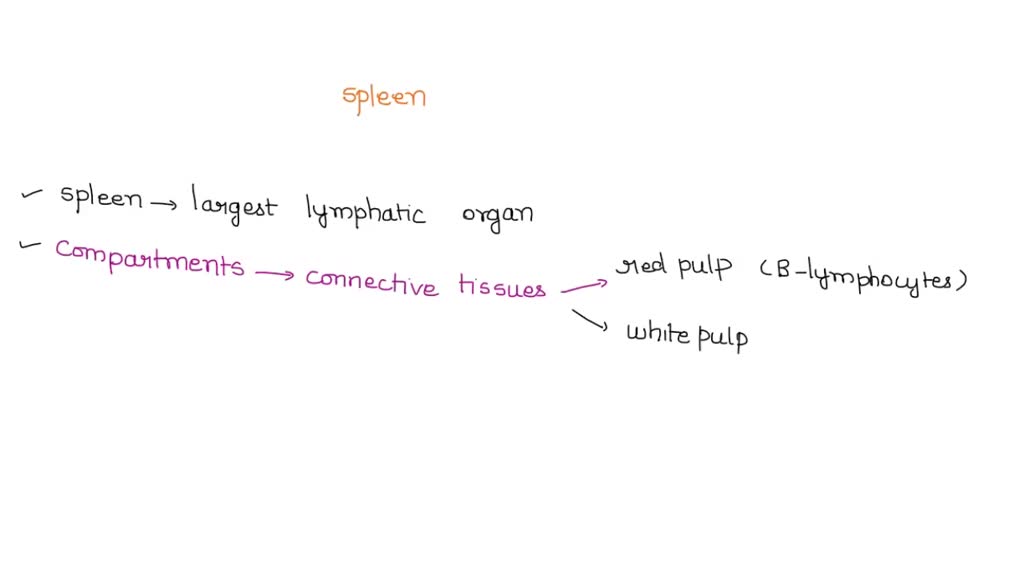 spleen
✓ spleen → largest lymphatic organ
✓ compartments → connective tissues → red pulp (B-lymphocytes)
→ white pulp